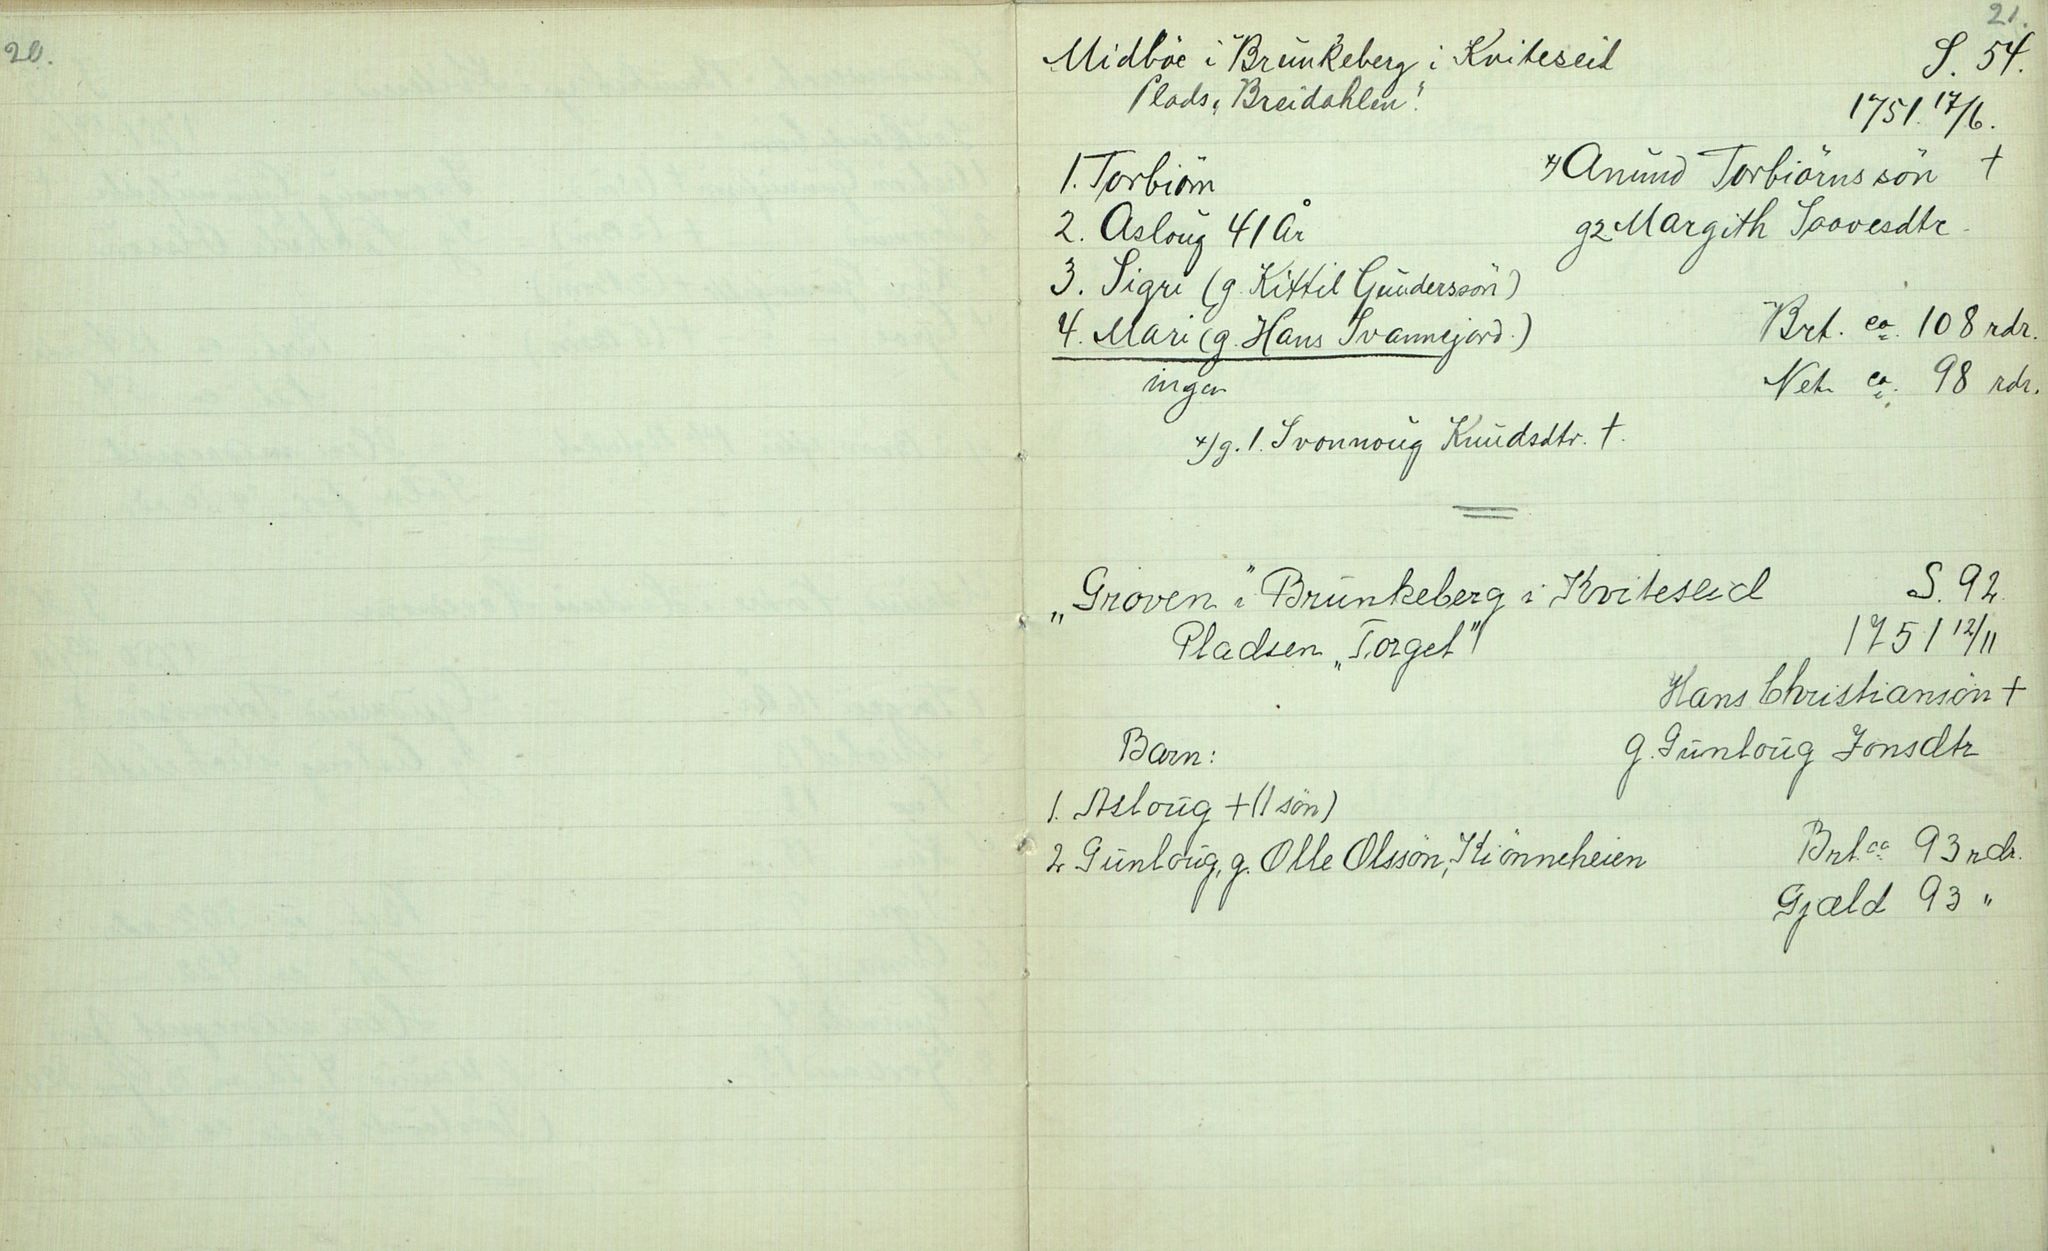 20.
21.
Midböe i Brunkeberg i Kviteseid S. 54.
Plads „Breidahlen".
1751. 17/6.
1. Torbiörn x) Anund Torbiörnssön †
2. Asloug 41 år g2 Margith Saavesdtr.
3. Sigri (g. Kittil Gunderssön)
4. Mari (g. Hans Svannejord.) Brt. ca. 108 rdr.
ingen Net. ca. 98 rdr.
x) g. 1. Svonnoug Knudsdtr. †.
„Groven" i Brunkeberg i Kviteseid S. 92.
Pladsen „Torget" 1751 12/11
Hans Christiansön †
Barn: g. Gunloug Jonsdtr
1. Asloug † (1 sön)
2 Gunloug, g. Olle Olssön, Kiönneheien Brt. ca. 93 rdr.
Gjæld 93 "